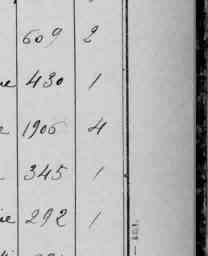 609 2
430 1
1906 4
345 1
292 1